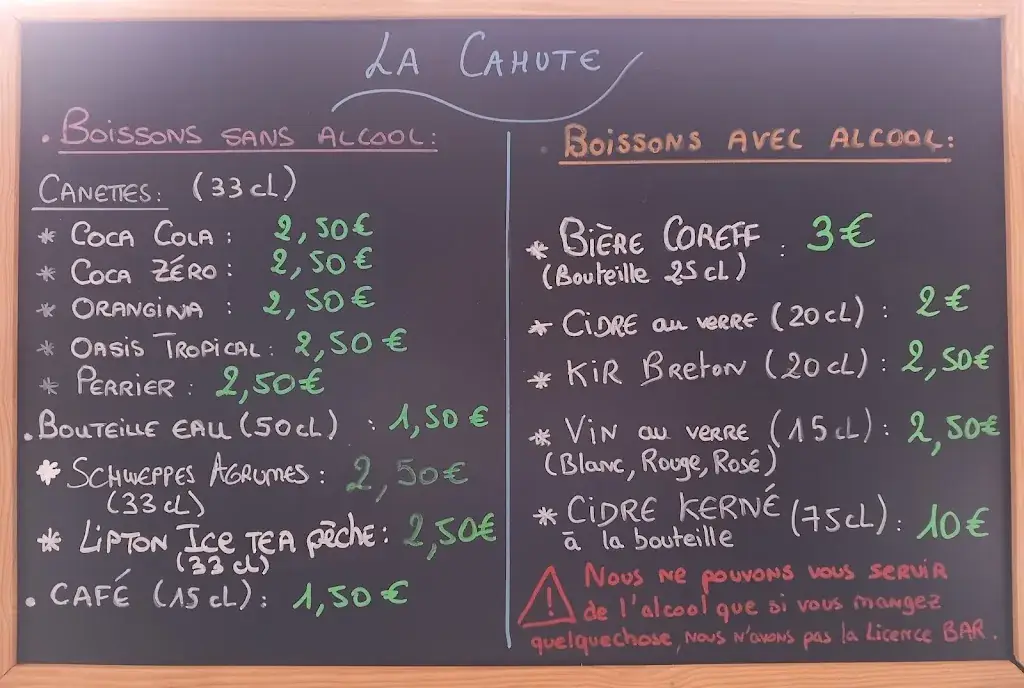 LA CAHUTE
. BOISSONS SANS ALCOOL:
CANETTES: (33 cL)
* COCA COLA : 2,50€
* COCA ZÉRO : 2,50€
* ORANGINA : 2,50€
* OASIS TROPICAL : 2,50€
* PERRIER : 2,50€
. BOUTEILLE EAU (50cL) : 1,50€
* SCHWEPPES AGRUMES : 2,50€
(33 cL)
* LIPTON Ice TEA pêche : 2,50€
(33 cL)
. CAFÉ (15 cL) : 1,50€
. BOISSONS AVEC ALCOOL:
* BIÈRE COREFF : 3€
(Bouteille 25 cL)
* CIDRE au verre (20cL) : 2€
* KIR Breton (20cL) : 2,50€
* VIN au verre (15cL) : 2,50€
(Blanc, Rouge, Rosé)
* CIDRE KERNÉ (75cL) : 10€
à la bouteille
Nous ne pouvons vous servir
de l'alcool que si vous mangez
quelquechose, nous n'avons pas la Licence BAR.